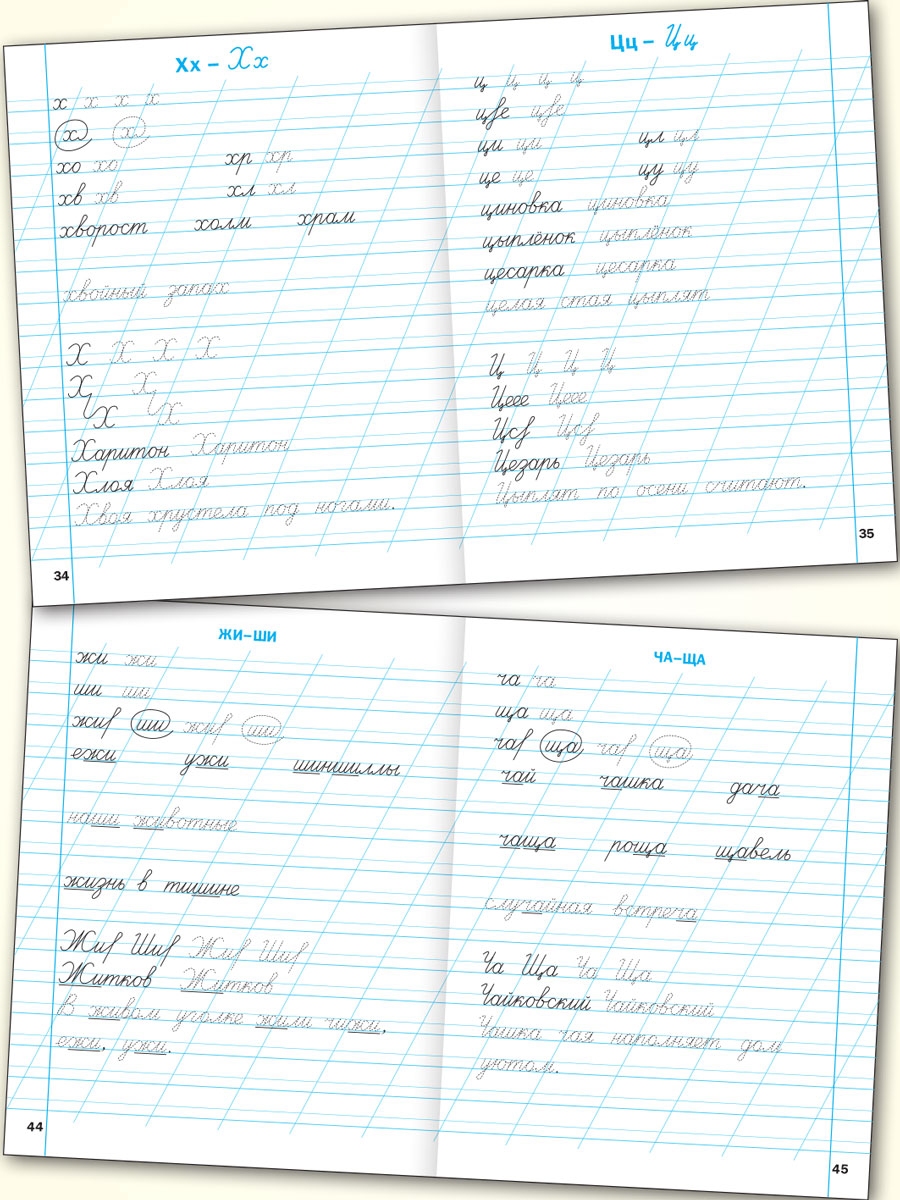 Хх – Хх
х х х х
х х
хо хо хр хр
хв хв хл хл
хворост холм храм
хвойный запах
Х Х Х Х
Х Х
Х Х
Харитон Харитон
Хлоя Хлоя
Хвоя хрустела под ногами.
34
Цц – Цц
ц ц ц ц
це це
ци ци цл цл
це це цу цу
циновка циновка
цыплёнок цыплёнок
цесарка цесарка
целая стая цыплят
Ц Ц Ц Ц
Цеее Цеее
Цс Цс
Цезарь Цезарь
Цыплят по осени считают.
35
ЖИ–ШИ
жи жи
ши ши
жи ши жи ши
ежи ужи шиншиллы
наши животные
жизнь в тишине
Жи Ши Жи Ши
Житков Житков
В живом уголке жили чижи,
ежи, ужи.
44
ЧА–ЩА
ча ча
ща ща
ча ща ча ща
чай чашка дача
чаща роща щавель
случайная встреча
Ча Ща Ча Ща
Чайковский Чайковский
Чашка чая наполняет дом
уютом.
45